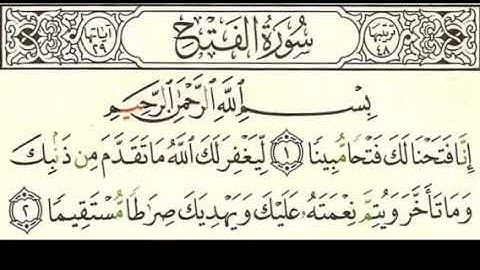 ترتيبها ٤٨ سُورَةُ الْفَتْحِ آياتها ٢٩
بِسْمِ اللَّهِ الرَّحْمَٰنِ الرَّحِيمِ
إِنَّا فَتَحْنَا لَكَ فَتْحًا مُّبِينًا ١ لِّيَغْفِرَ لَكَ اللَّهُ مَا تَقَدَّمَ مِن ذَنۢبِكَ
وَمَا تَأَخَّرَ وَيُتِمَّ نِعْمَتَهُۥ عَلَيْكَ وَيَهْدِيَكَ صِرَٰطًا مُّسْتَقِيمًا ٢